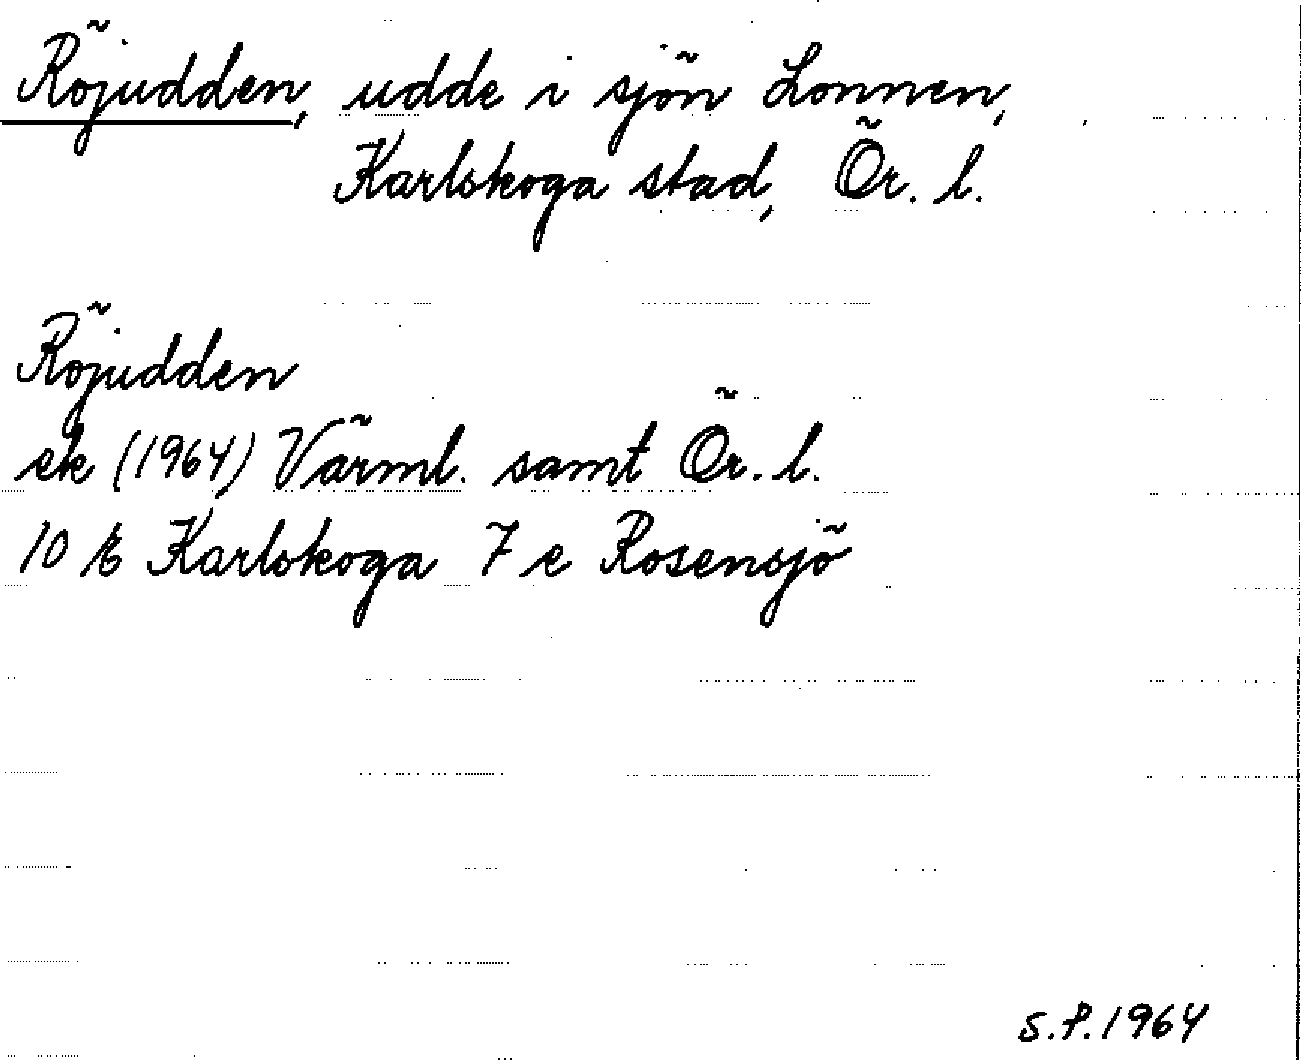 Röjudden, udde i sjön Lonnen,
Karlskoga stad, Ör. l.
Röjudden
ek (1964) Värml. samt Ör. l.
10 E Karlskoga 7 e Rosensjö
S.P. 1964